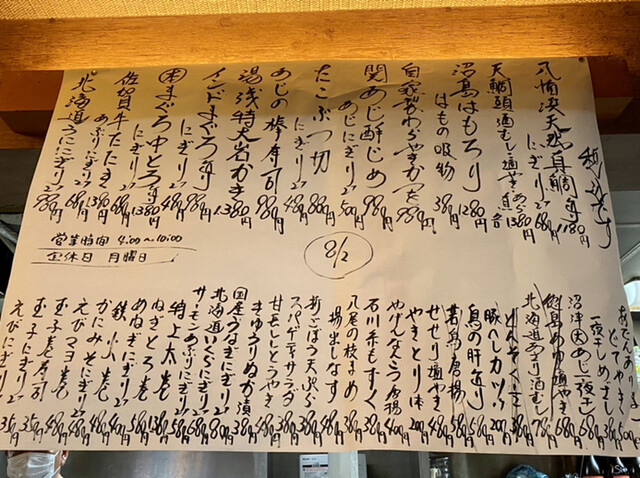 税込です
八幡浜天然真鯛造り 1180円
にぎり2ケ 680円
天鯛頭酒むし・塩やき 1380円
沼島はもとり 1280円
はもの吸物 380円
自家製わらやきかつを 980円
関あじ酢じめ 980円
あじにぎり2ケ 500円
たこぶつ切 880円
にぎり2ケ 480円
あじの棒寿司 980円
湯浅特大岩がき 1380円
インドまぐろ造り 980円
にぎり2ケ 480円
本まぐろ中とろ造り 1380円
にぎり2ケ 680円
佐賀牛たたき 1380円
あぶりにぎり2ケ 680円
北海道うにぎり2ケ 980円
営業時間 4:00〜10:00
定休日 月曜日
8/2
一夜干しめざし 380円
沼津大あじ一夜干し 680円
徳島あゆ塩やき 680円
北海道あさり酒むし 780円
とんそく
豚ヒレカツ1ケ 200円
鳥の肝造り 580円
若鳥唐揚 580円
せせり塩やき 480円
やきとり1本 200円
やげんなんこつ唐揚 480円
石川糸もずく 380円
八尾の枝まめ 380円
揚出しなす 480円
新ごぼう天ぷら 480円
スパゲティサラダ 380円
甘長ししとうやき 380円
きゅうりぬか漬 380円
国産うなぎにぎり2ケ 980円
北海道いくらにぎり2ケ 800円
サーモンあぶりにぎり2ケ 680円
特上太巻 580円
ねぎとろ巻 1380円
めねぎにぎり2ケ 580円
鉄火小巻 680円
かにみそ小巻 480円
えびにぎり2ケ 480円
えびマヨ巻 480円
玉子巻寿司 480円
玉子にぎり2ケ 350円
えびにぎり2ケ 350円